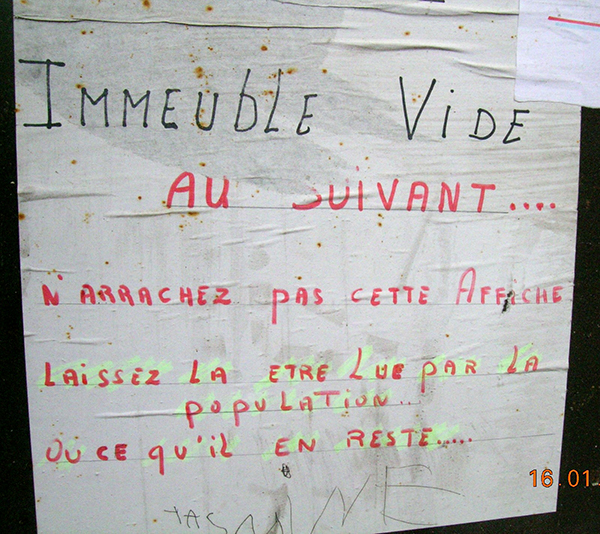 IMMEUBLE VIDE
AU SUIVANT....
N'ARRACHEZ PAS CETTE AFFICHE
LAISSEZ LA ETRE LUE PAR LA
POPULATION..
OU CE QU'IL EN RESTE.....
16.01